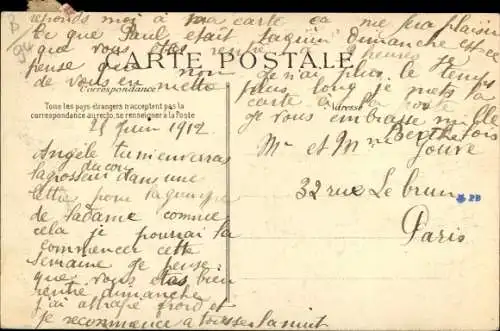 reponds moi à ma carte ça me fera plaisir
ce que Paul était taquin dimanche est ce
que vous êtes rentré à 9 heures je
pense que non je n'ai plus le temps
de vous en mettre plus long je mets la
CARTE POSTALE
Correspondance
Adresse
Tous les pays étrangers n'acceptent pas la
correspondance au recto, se renseigner à la Poste
carte à la poste
je vous embrasse mille fois
Berthe
25 juin 1912
Mr et Mme Jouve
32 rue Lebrun
Paris
Angèle tu m'enverras
la grosseur du cou dans une
lettre pour la guimpe
de la dame comme
cela je pourrai la
commencer cette
semaine je pense
que vous êtes bien
rentré dimanche
j'ai attrapé froid et
je recommence a tousser la nuit